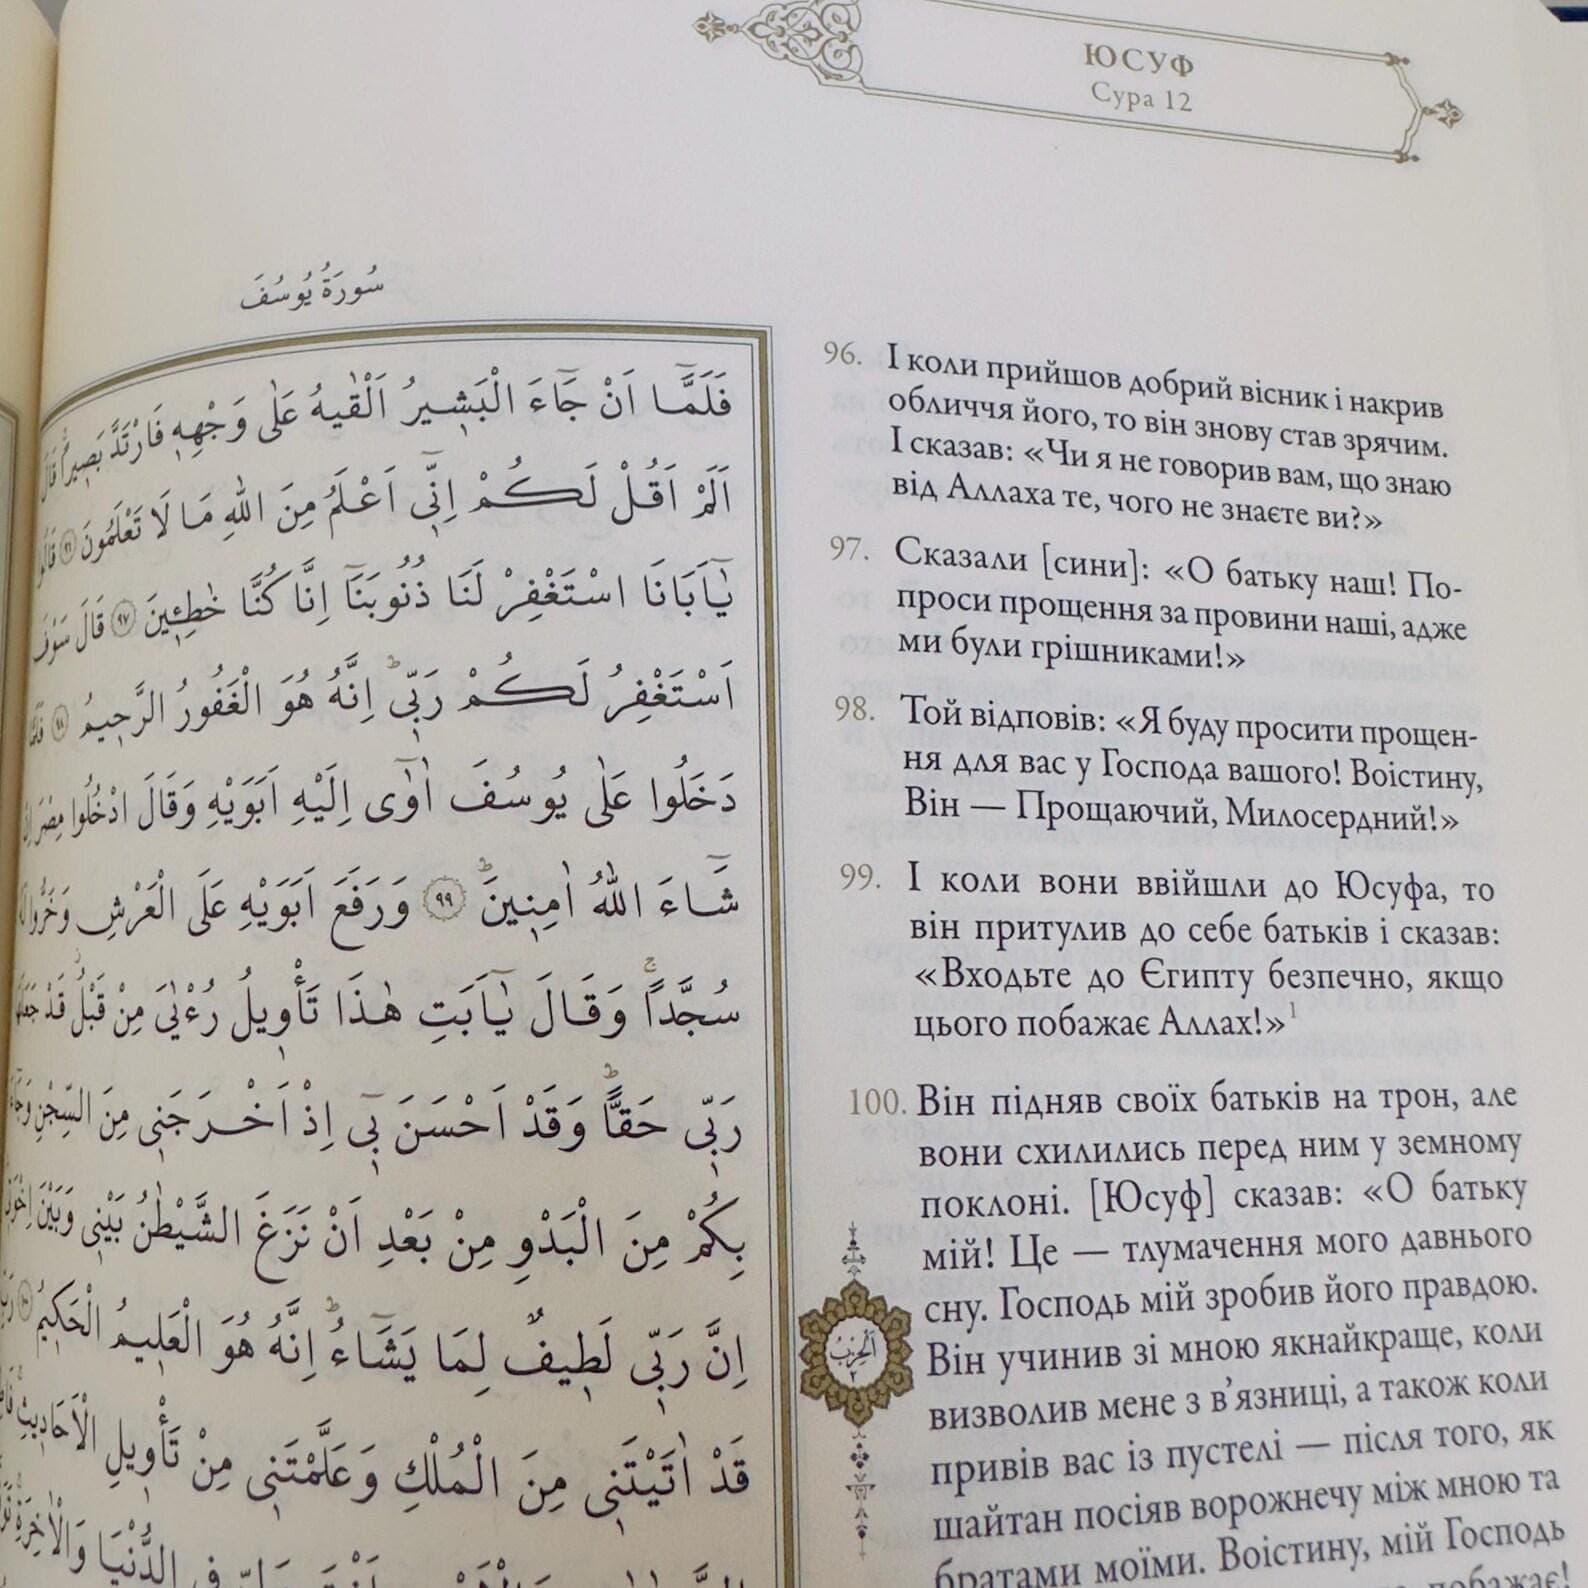 ЮСУФ
Сура 12
سُورَةُ يُوسُفَ
فَلَمَّٓا اَنْ جَٓاءَ الْبَش۪يرُ اَلْقٰيهُ عَلٰى وَجْهِه۪ فَارْتَدَّ بَص۪يرًاۚ قَالَ
اَلَمْ اَقُلْ لَكُمْ اِنّ۪ٓي اَعْلَمُ مِنَ اللّٰهِ مَا لَا تَعْلَمُونَ ﴿٩٦﴾ قَالُوا
يَٓا اَبَانَا اسْتَغْفِرْ لَنَا ذُنُوبَنَٓا اِنَّا كُنَّا خَاطِـ۪ٔينَ ﴿٩٧﴾ قَالَ سَوْفَ
اَسْتَغْفِرُ لَكُمْ رَبّ۪يۜ اِنَّهُ هُوَ الْغَفُورُ الرَّح۪يمُ ﴿٩٨﴾ فَلَمَّا
دَخَلُوا عَلٰى يُوسُفَ اٰوٰٓى اِلَيْهِ اَبَوَيْهِ وَقَالَ ادْخُلُوا مِصْرَ اِنْ
شَٓاءَ اللّٰهُ اٰمِن۪ينَۜ ﴿٩٩﴾ وَرَفَعَ اَبَوَيْهِ عَلَى الْعَرْشِ وَخَرُّوا
سُجَّدًاۚ وَقَالَ يَٓا اَبَتِ هٰذَا تَأْو۪يلُ رُءْيَايَ مِنْ قَبْلُۘ قَدْ جَعَلَهَا
رَبّ۪ي حَقًّاۜ وَقَدْ اَحْسَنَ ب۪ٓي اِذْ اَخْرَجَن۪ي مِنَ السِّجْنِ وَجَٓاءَ
بِكُمْ مِنَ الْبَدْوِ مِنْ بَعْدِ اَنْ نَزَغَ الشَّيْطَانُ بَيْن۪ي وَبَيْنَ اِخْوَت۪ي
اِنَّ رَبّ۪ي لَط۪يفٌ لِمَا يَشَٓاءُۜ اِنَّهُ هُوَ الْعَل۪يمُ الْحَك۪يمُ ﴿١٠٠﴾ رَبِّ
قَدْ اٰتَيْتَن۪ي مِنَ الْمُلْكِ وَعَلَّمْتَن۪ي مِنْ تَأْو۪يلِ الْاَحَاد۪يثِۚ
الدُّنْيَا وَالْاٰخِرَةِۚ
96. І коли прийшов добрий вісник і накрив
обличчя його, то він знову став зрячим.
І сказав: «Чи я не говорив вам, що знаю
від Аллаха те, чого не знаєте ви?»
97. Сказали [сини]: «О батьку наш! По-
проси прощення за провини наші, адже
ми були грішниками!»
98. Той відповів: «Я буду просити прощен-
ня для вас у Господа вашого! Воістину,
Він — Прощаючий, Милосердний!»
99. І коли вони ввійшли до Юсуфа, то
він притулив до себе батьків і сказав:
«Входьте до Єгипту безпечно, якщо
цього побажає Аллах!»¹
100. Він підняв своїх батьків на трон, але
вони схилились перед ним у земному
поклоні. [Юсуф] сказав: «О батьку
мій! Це — тлумачення мого давнього
сну. Господь мій зробив його правдою.
Він учинив зі мною якнайкраще, коли
визволив мене з в’язниці, а також коли
привів вас із пустелі — після того, як
шайтан посіяв ворожнечу між мною та
братами моїми. Воістину, мій Господь
побажає!
اَلْحِزْبُ
٢